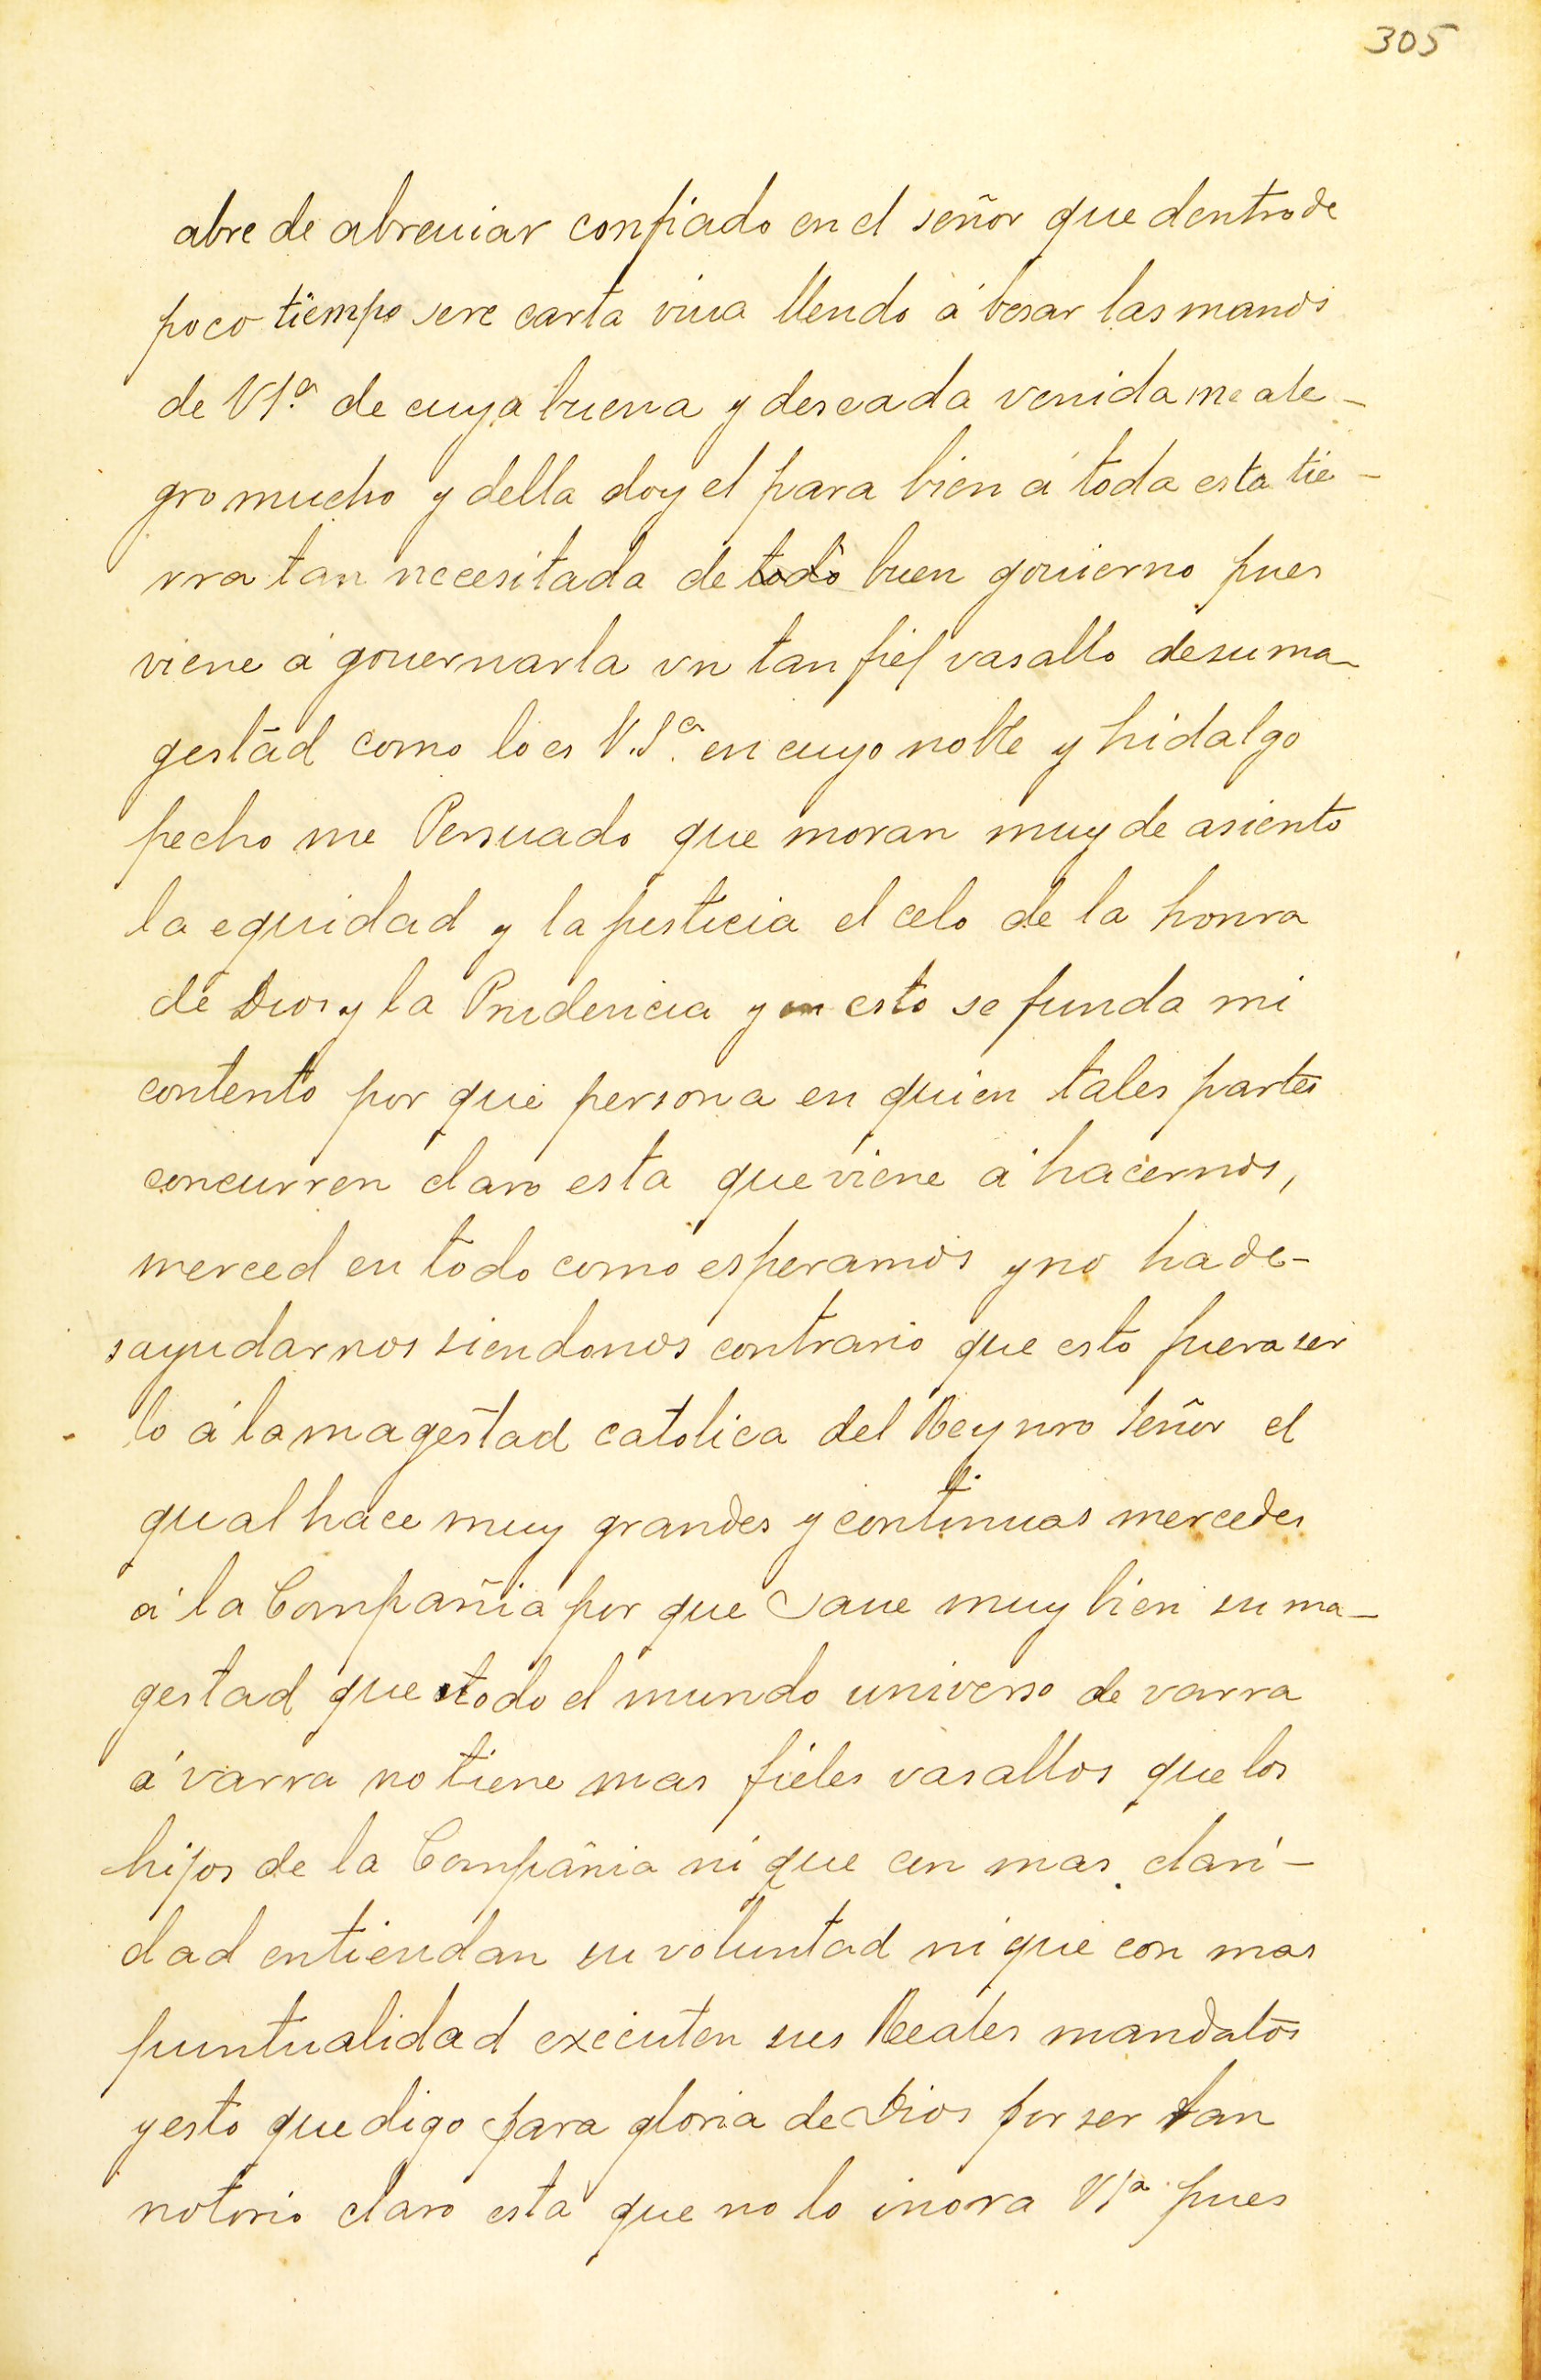 305
abre de abreuiar confiado en el señor que dentro de
poco tiempo sere carta viua llendo á besar las manos
de VSª de cuya buena y deseada venida me ale-
gro mucho y della doy el para bien á toda esta tie-
rra tan necesitada de todo buen gouierno pues
viene á gouernarla vn tan fiel vasallo de su ma-
gestad como lo es V.Sª. en cuyo noble y hidalgo
pecho me Persuado que moran muy de asiento
la equidad y la justicia el celo de la honra
de Dios y la Prudencia y en esto se funda mi
contento por que persona en quien tales partes
concurren claro esta que viene á hacernos,
merced en todo como esperamos y no ha de-
sayudarnos siendonos contrario que esto fuera ser
lo á la magestad catolica del Rey nro Señor el
qual hace muy grandes y continuas mercedes
á la Compañia por que Saue muy bien su ma-
gestad que todo el mundo universo de varra
á varra no tiene mas fieles vasallos que los
hijos de la Compañia ni que con mas clari-
dad entiendan su voluntad ni que con mas
puntualidad executen sus Reales mandatos
y esto que digo para gloria de Dios por ser tan
notorio claro está que no lo inora VSª pues